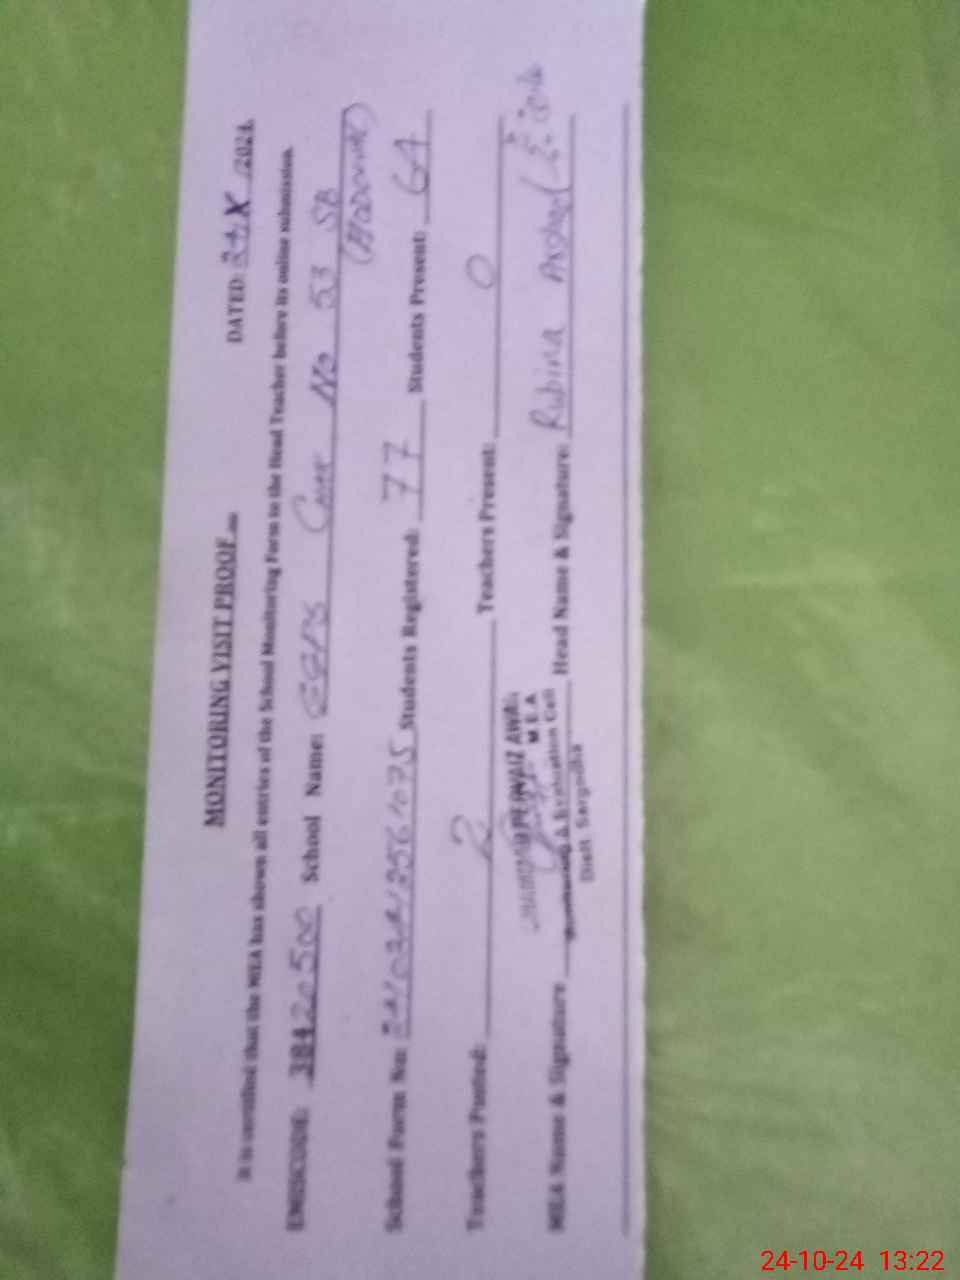 MONITORING VISIT PROOF
DATED: 24/X /2024.
It is certified that the MEA has shown all entries of the School Monitoring Form to the Head Teacher before its online submission.
EMISCODE: 38420500 School Name: GGPS Chak No 53 SB
School Form No: Students Registered: 77 Students Present: 64
Teachers Posted: 2 Teachers Present: 0
MEA Name & Signature Head Name & Signature: Rubina
M.E.A
Monitoring & Evaluation Cell
Distt. Sargodha
24-10-24 13:22